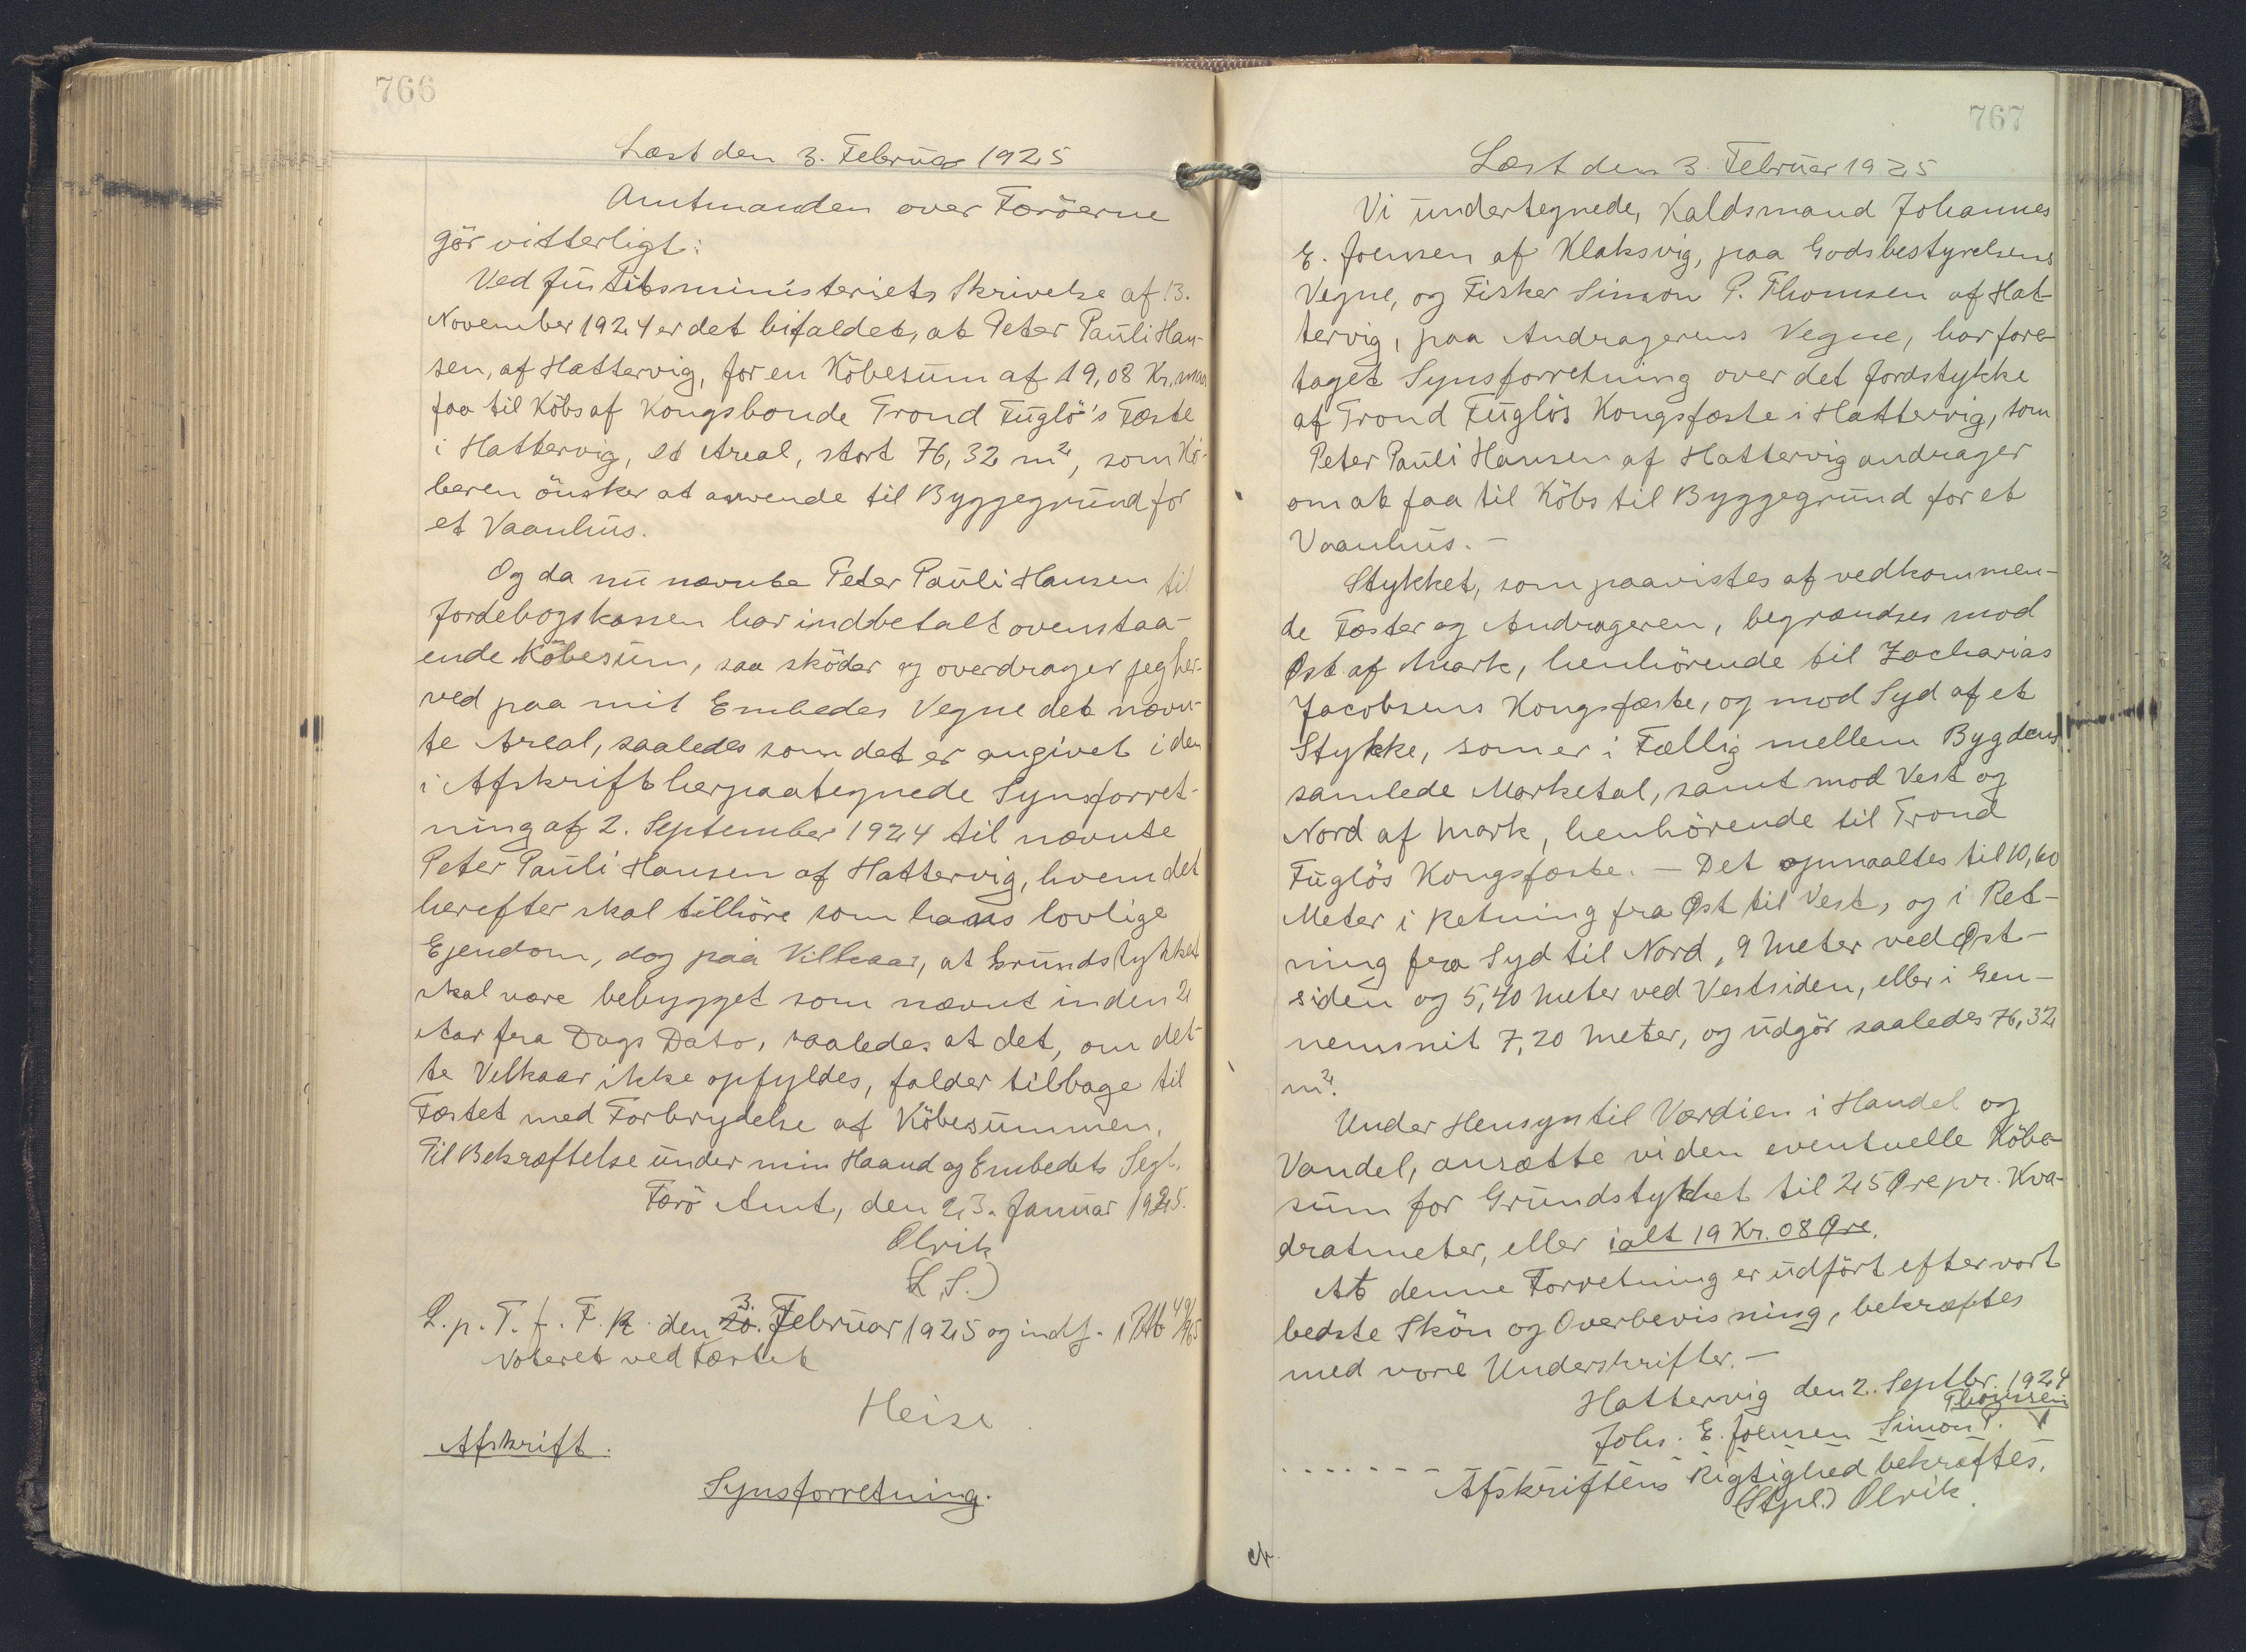 766
Læst den 3. Februar 1925
Amtmanden over Færöerne
gör vitterligt:
Ved Justitsministeriets Skrivelse af 13.
November 1924 er det bifaldet, at Peter Pauli Han-
sen, af Hattervig, for en Köbesum af 19,08 Kr, maa
faa til Köbs af Kongsbonde Trond Fuglö's Fæste
i Hattervig, et Areal, stort 76,32 m², som Kö-
beren önsker at anvende til Byggegrund for
et Vaanhus.
Og da nu nævnte Peter Pauli Hansen til
Jordebogskassen har indbetalt ovenstaa-
ende Köbesum, saa sköder og overdrager jeg her-
ved paa mit Embedes Vegne det nævn-
te Areal, saaledes som det er angivet i den
i Afskrift herpaategnede Synsforret-
ning af 2. September 1924 til nævnte
Peter Pauli Hansen af Hattervig, hvem det
herefter skal tilhöre som hans lovlige
Ejendom, dog paa Vilkaar, at Grundstykket
skal være bebygget som nævnt inden 2
Aar fra Dags Dato, saaledes at det, om det-
te Vilkaar ikke opfyldes, falder tilbage til
Fæstet med Forbrydelse af Köbesummen.
Til Bekræftelse under min Haand og Embedets Segl.
Færö Amt, den 23. Januar 1925.
Olrik
(L.S.)
L. p. T. f. F. R. den 3. Februar 1925 og indf. i Ptb 49/965
Noteret ved Fæstet
Heise
Afskrift.
Synsforretning.
767
Læst den 3. Februar 1925
Vi undertegnede, Kaldsmand Johannes
E. Joensen af Klaksvig, paa Godsbestyrelsens
Vegne, og Fisker Simon P. Thomsen af Hat-
tervig, paa Andragerens Vegne, har fore-
taget Synsforretning over det Jordstykke
af Trond Fuglös Kongsfæste i Hattervig, som
Peter Pauli Hansen af Hattervig andrager
om at faa til Köbs til Byggegrund for et
Vaanhus. -
Stykket, som paavistes af vedkommen-
de Fæster og Andrageren, begrændses mod
Øst af Mark, henhörende til Zacharias
Jacobsens Kongsfæste, og mod Syd af et
Stykke, som er i Fællig mellem Bygdens
samlede Marketal, samt mod Vest og
Nord af Mark, henhörende til Trond
Fuglös Kongsfæste. - Det opmaaltes til 10,60
Meter i Retning fra Øst til Vest, og i Ret-
ning fra Syd til Nord, 9 Meter ved Øst-
siden og 5,40 Meter ved Vestsiden, eller i Gen-
nemsnit 7,20 Meter, og udgör saaledes 76,32
m².
Under Hensyn til Værdien i Handel og
Vandel, ansætte vi den eventuelle Köbe-
sum for Grundstykket til 25 Øre pr. Kva-
dratmeter, eller ialt 19 Kr. 08 Øre.
At denne Forretning er udfört efter vort
bedste Skön og Overbevisning, bekræftes
med vore Underskrifter. -
Hattervig den 2. Septbr. 1924
Johs. E. Joensen Simon P. Thomsen
Afskriftens Rigtighed bekræftes.
(Stpl.) Olrik.